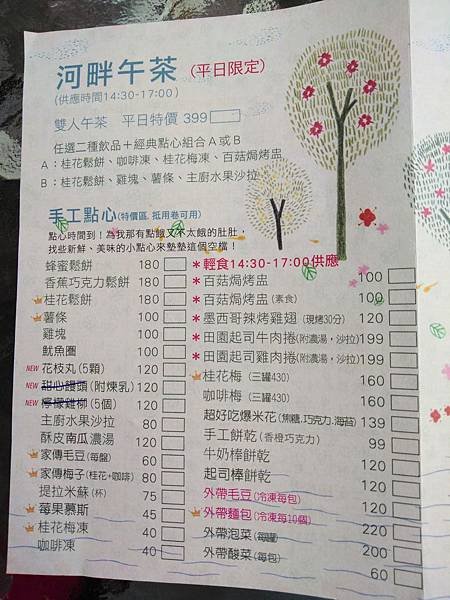 河畔午茶 (平日限定)
(供應時間14:30-17:00)
雙人午茶 平日特價 399
任選二種飲品＋經典點心組合A或B
A：桂花鬆餅、咖啡凍、桂花梅凍、百菇焗烤盅
B：桂花鬆餅、雞塊、薯條、主廚水果沙拉
手工點心(特價區, 抵用卷可用)
點心時間到！為我那有點餓又不太餓的肚肚，
找些新鮮、美味的小點心來墊墊這個空檔！
蜂蜜鬆餅 180
香蕉巧克力鬆餅 180
桂花鬆餅 180
薯條 100
雞塊 100
魷魚圈 100
NEW 花枝丸(5顆) 120
NEW 甜心饅頭(附煉乳) 120
NEW 檸檬雞柳(5個) 120
主廚水果沙拉 80
酥皮南瓜濃湯 120
家傳毛豆(每盤) 60
家傳梅子(桂花+咖啡) 80
提拉米蘇(杯) 75
莓果慕斯 45
桂花梅凍 40
咖啡凍 40
＊輕食14:30-17:00供應
＊百菇焗烤盅 100
＊百菇焗烤盅(素食) 100
＊墨西哥辣烤雞翅(現烤30分) 120
＊田園起司牛肉捲(附濃湯，沙拉) 199
＊田園起司雞肉捲(附濃湯，沙拉) 199
桂花梅(三罐430) 160
咖啡梅(三罐430) 160
超好吃爆米花(焦糖.巧克力.海苔) 139
手工餅乾(香橙巧克力) 99
牛奶棒餅乾 120
起司棒餅乾 120
外帶毛豆(冷凍每包) 120
外帶麵包(冷凍每10個) 220
外帶泡菜(每罐) 200
外帶酸菜(每包) 60